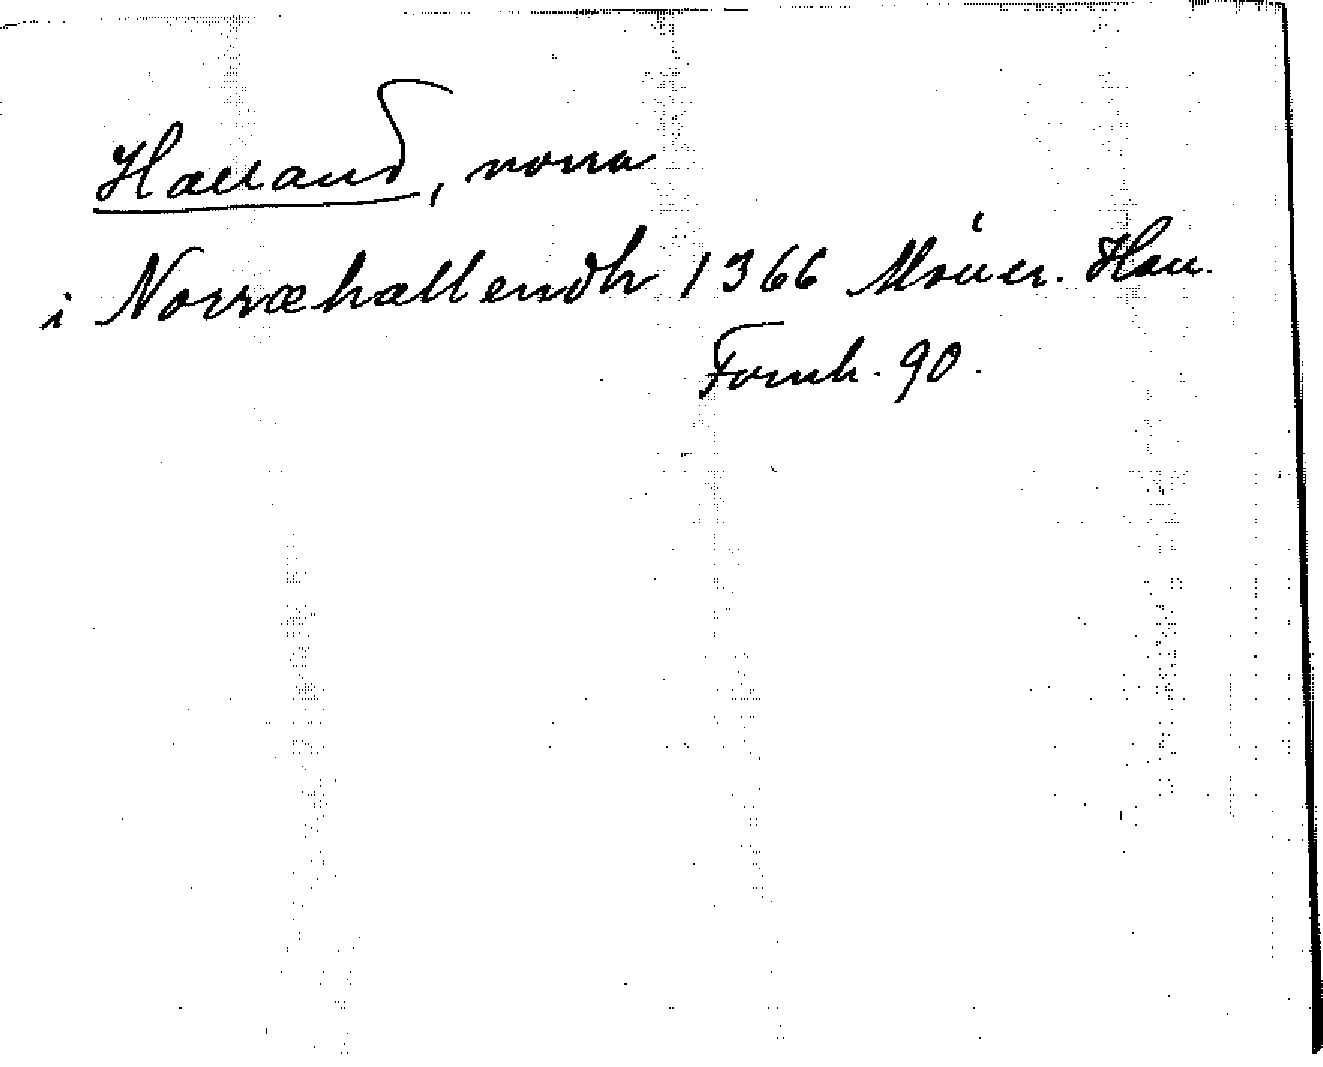 Halland, norra
i Norræhallendh 1366 Möller. Hall.
Fornh. 90.